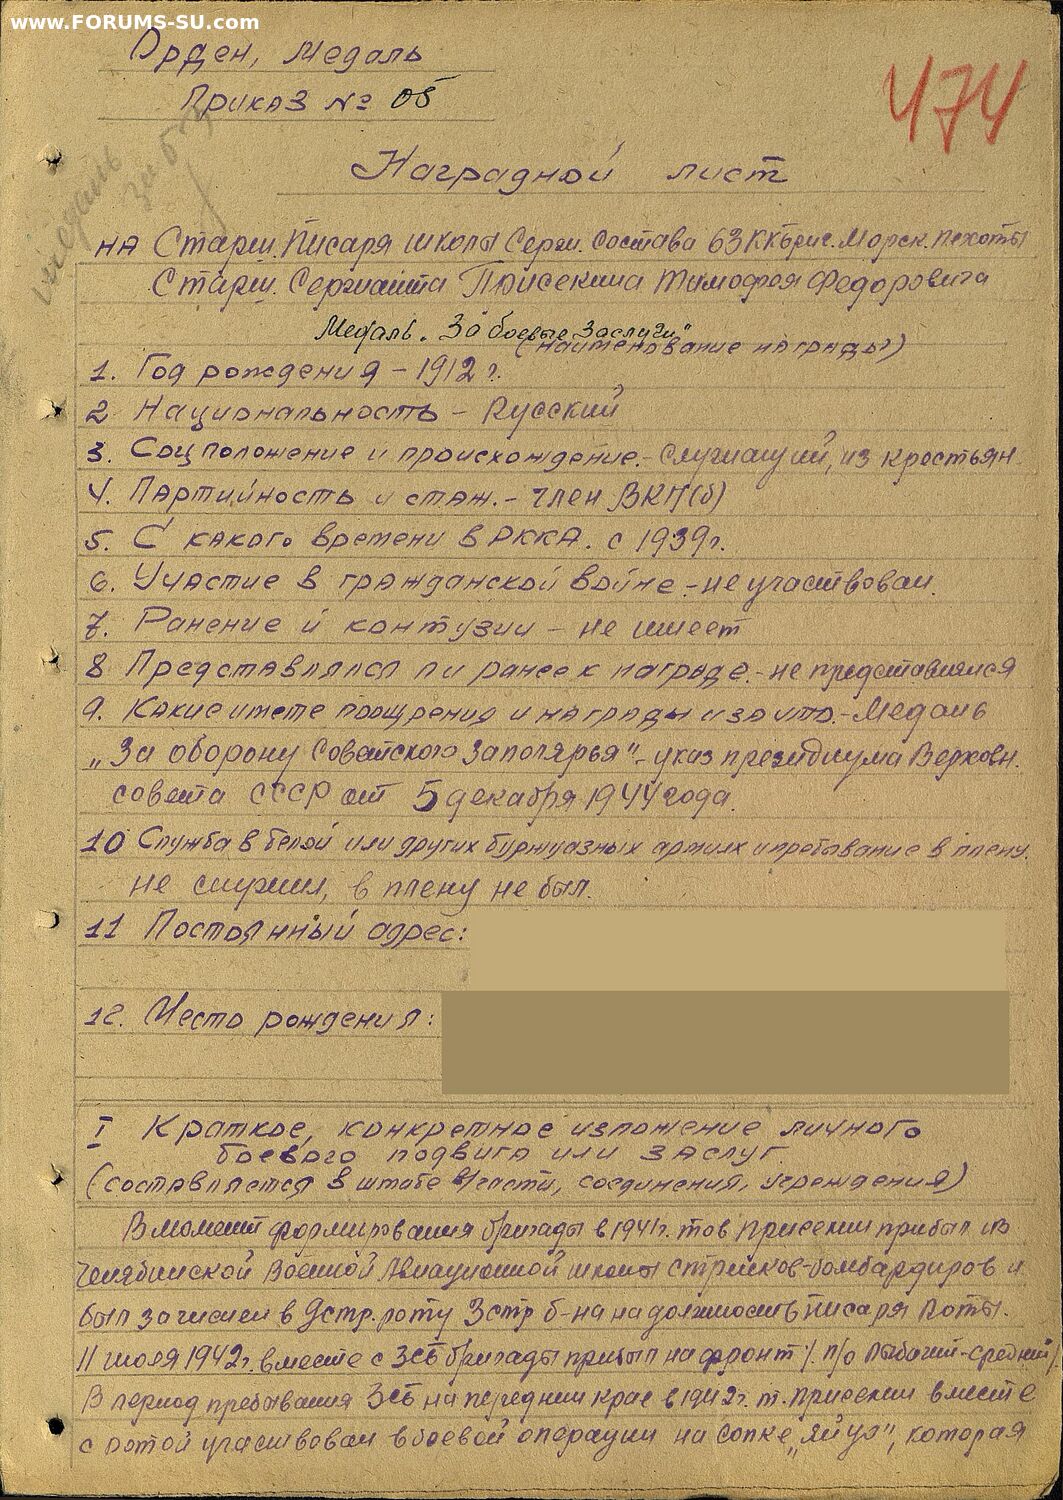 www.FORUMS-SU.com
Орден, Медаль
Приказ № 05
474
медаль
за б з
Наградной лист
на Старш. Писаря школы Серж. Состава 63 ККбриг. Морск. Пехоты
Старш. Сержанта Присекина Тимофея Федоровича
Медаль „За боевые заслуги"
(наименование награды)
1. Год рождения – 1912 г.
2 Национальность – Русский
3. Соц положение и происхождение. – Служащий, из крестьян
4. Партийность и стаж. – член ВКП(б)
5. С какого времени в РККА. с 1939 г.
6. Участие в гражданской войне. – не участвовал.
7. Ранение и контузии – не имеет
8 Представлялся ли ранее к награде. – не представлялся
9. Какие имеете поощрения и награды и за что. – Медаль
„За оборону Советского Заполярья" – указ президиума Верховн.
совета СССР от 5 декабря 1944 года.
10 Служба в белой или других буржуазных армиях и пребывание в плену.
не служил, в плену не был.
11 Постоянный адрес:
12. Место рождения:
I Краткое, конкретное изложение личного
боевого подвига или заслуг
(составляется в штабе части, соединения, учреждения)
В момент формирования бригады в 1941 г. тов Присекин прибыл из
Челябинской Военной Авиационной школы стрелков-бомбардиров и
был зачислен в 9 стр. роту 3 стр б-на на должность писаря Роты.
11 июля 1942 г. вместе с 3 СБ бригады прибыл на фронт /. п/о Рыбачий-средний/.
В период пребывания 3сб на переднем крае в 1942 г. т. Присекин вместе
с ротой участвовал в боевой операции на сопке „Яйцо", которая